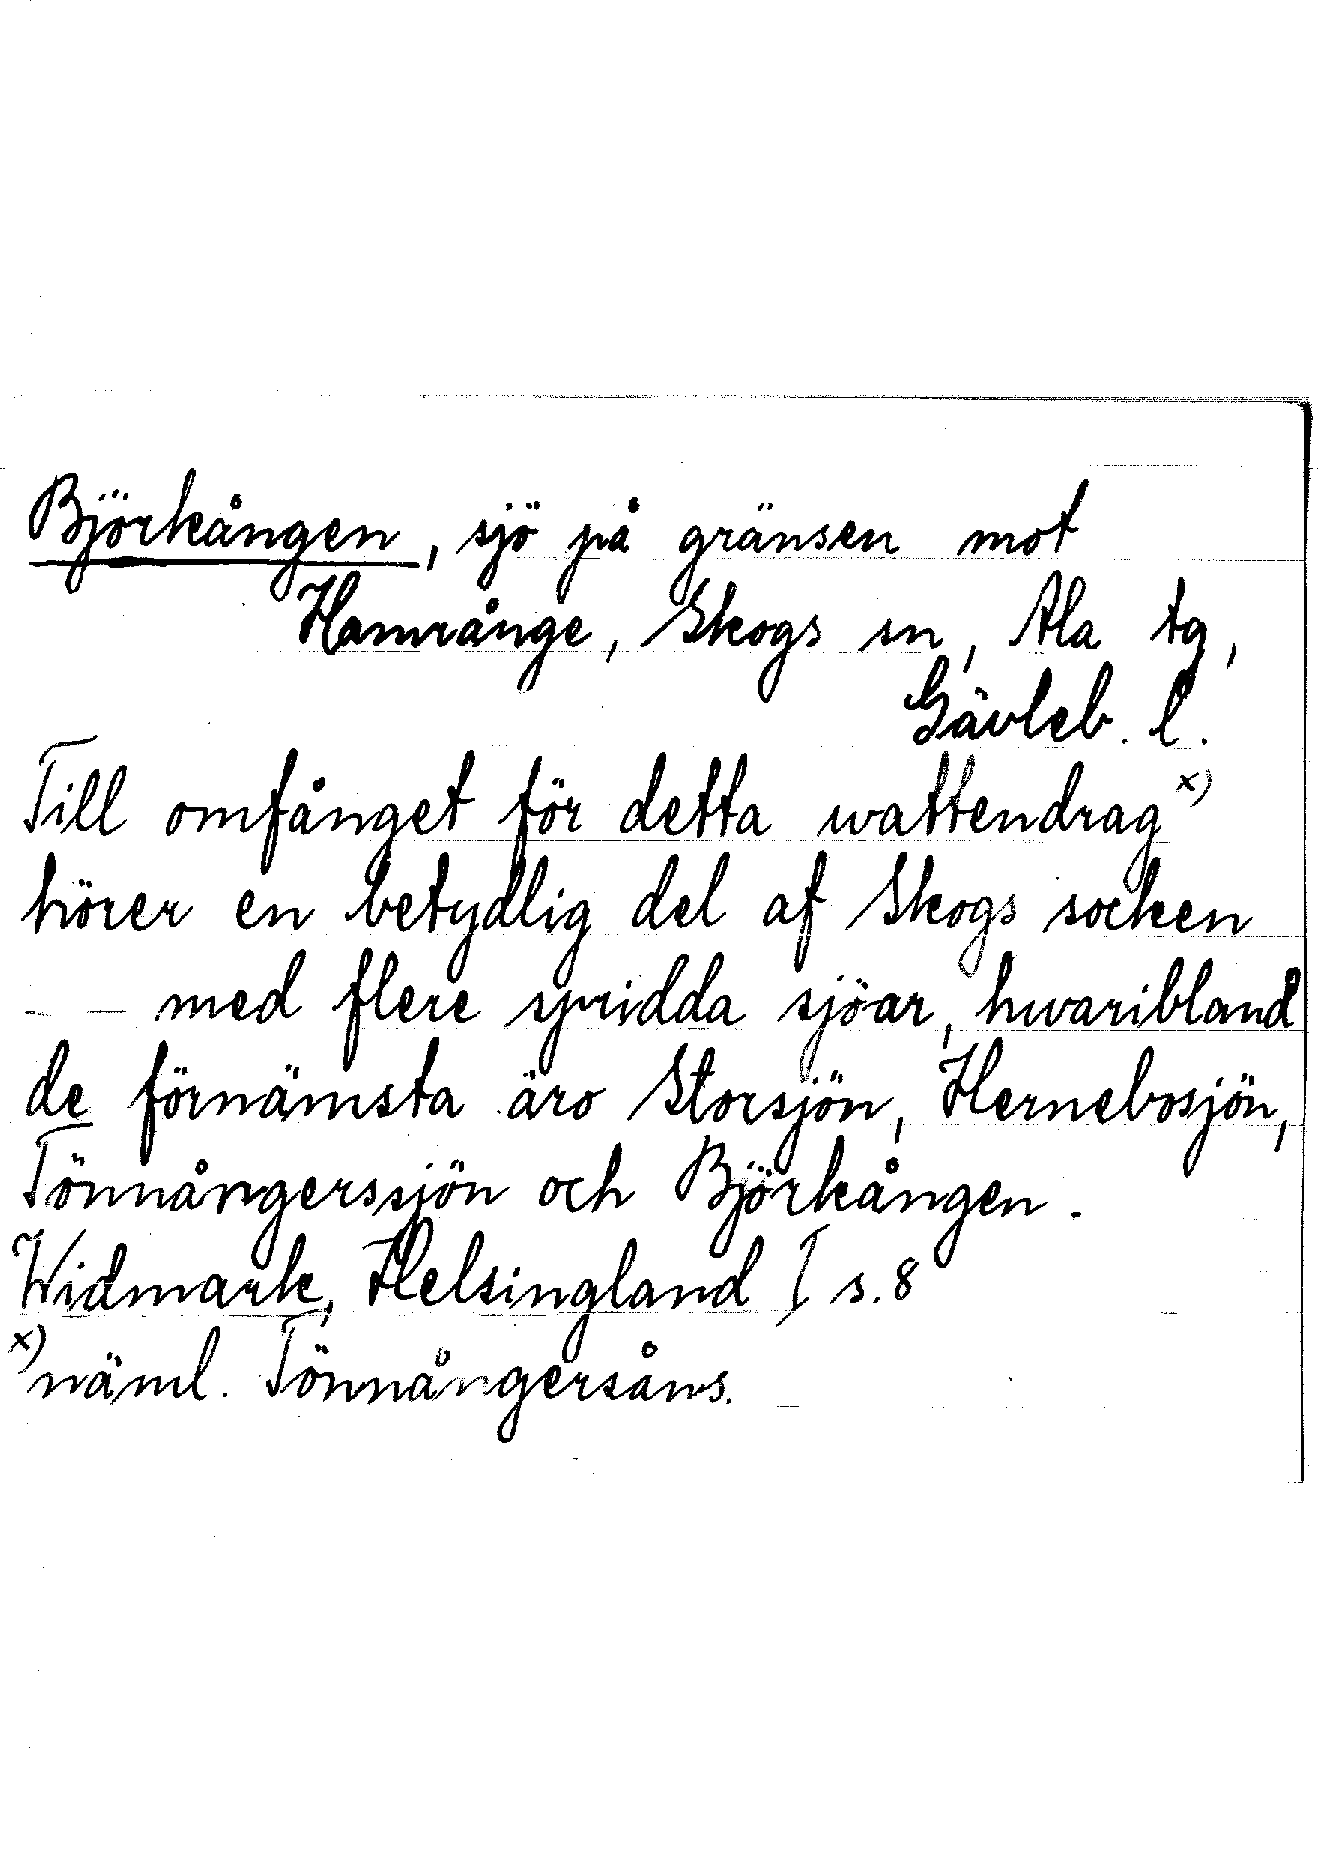 Björkången, sjö på gränsen mot
Hamrånge, Skogs sn, Ala tg,
Gävleb. l.
Till omfånget för detta wattendrag x)
hörer en betydlig del af Skogs socken
— — med flere spridda sjöar, hwaribland
de förnämsta äro Storsjön, Hernebosjön,
Tönnångerssjön och Björkången.
Widmark, Helsingland I s. 8
x) näml. Tönnångersåns.